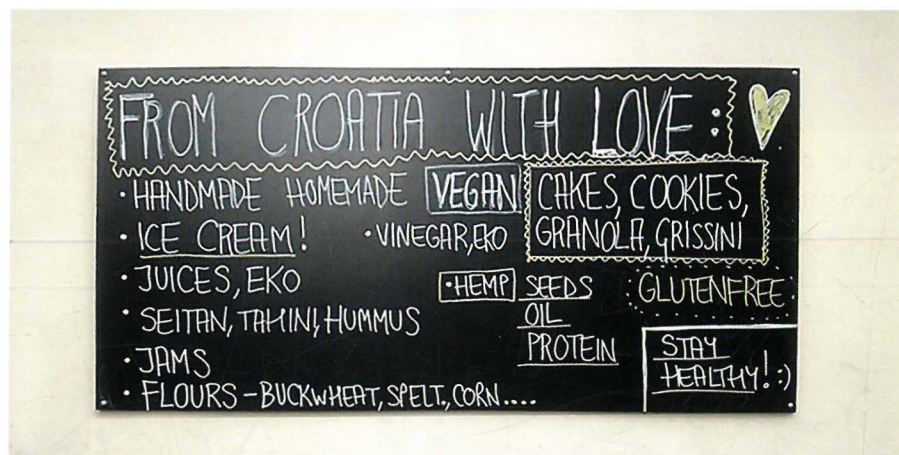 FROM CROATIA WITH LOVE:
• HANDMADE HOMEMADE VEGAN CAKES, COOKIES,
GRANOLA, GRISSINI
• ICE CREAM!
• VINEGAR, EKO
• JUICES, EKO
• HEMP SEEDS
OIL
PROTEIN
GLUTENFREE
• SEITAN, TAHINI, HUMMUS
• JAMS
• FLOURS - BUCKWHEAT, SPELT, CORN....
STAY
HEALTHY! :)